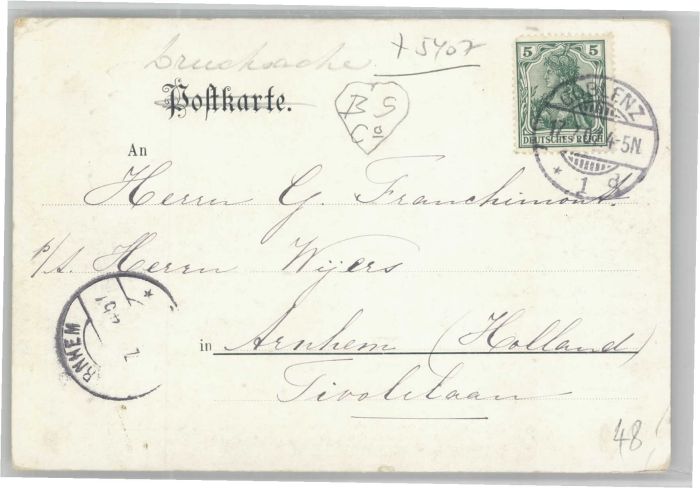 Drucksache
+ 5402
Postkarte.
B S
Co
5 5
DEUTSCHES REICH
COBLENZ
17.7.0 4-5N.
* 1 d
An
Herrn G. Franchimont.
p/A. Herrn Wijers
ARNHEM
in Arnhem (Holland)
Tivolilaan
48